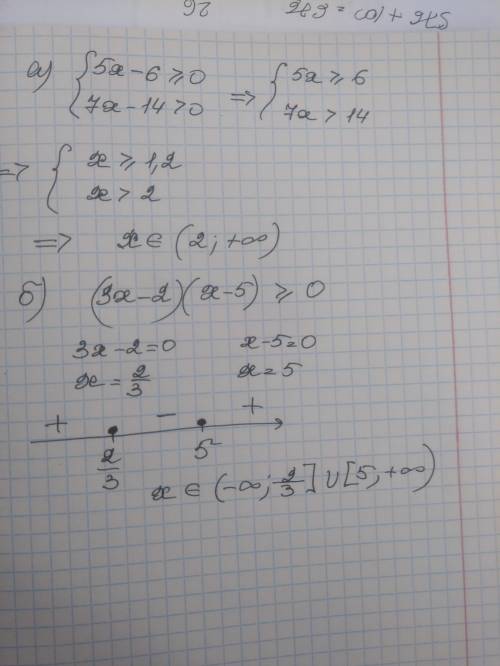 а) { 5x - 6 ≥ 0 => { 5x ≥ 6
7x - 14 > 0 7x > 14
=> { x ≥ 1,2
x > 2
=> x ∈ (2; +∞)
б) (3x - 2)(x - 5) ≥ 0
3x - 2 = 0 x - 5 = 0
x = 2/3 x = 5
+ - +
2/3 5
x ∈ (-∞; 2/3] ∪ [5; +∞)